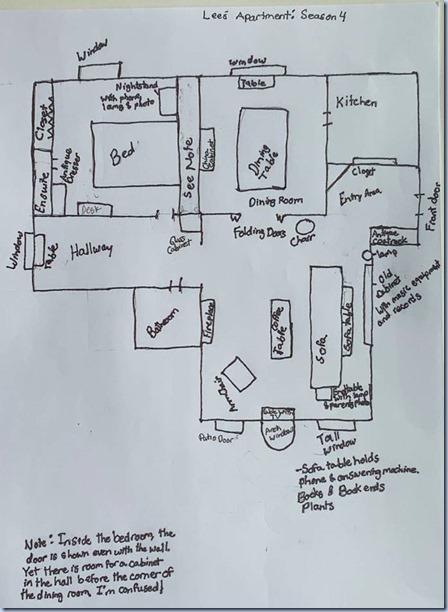 Lees' Apartment: Season 4
Window
Window
Nightstand
with phone,
lamp & photo
Table
Kitchen
Closet
Bed
See Note
China Cabinet
Dining
Table
Antique
Dresser
Ensuite
Desk
Dining Room
Closet
Entry Area
Front door
Folding Doors
Chair
Antique
Coatrack
Window
Table
Hallway
Cabinet
-lamp
- Old
Cabinet
with music equipment
and records
Bathroom
Fireplace
Coffee
Table
Sofa
Sofa table
Armchair
Endtable
with lamp
& parents photo
Patio Door
Arch
Window
Tall
Window
-Sofa table holds
phone & answering machine.
Books & Book ends
Plants
Note: Inside the bedroom, the
door is shown even with the wall.
Yet there is room for a cabinet
in the hall before the corner of
the dining room. I'm confused!